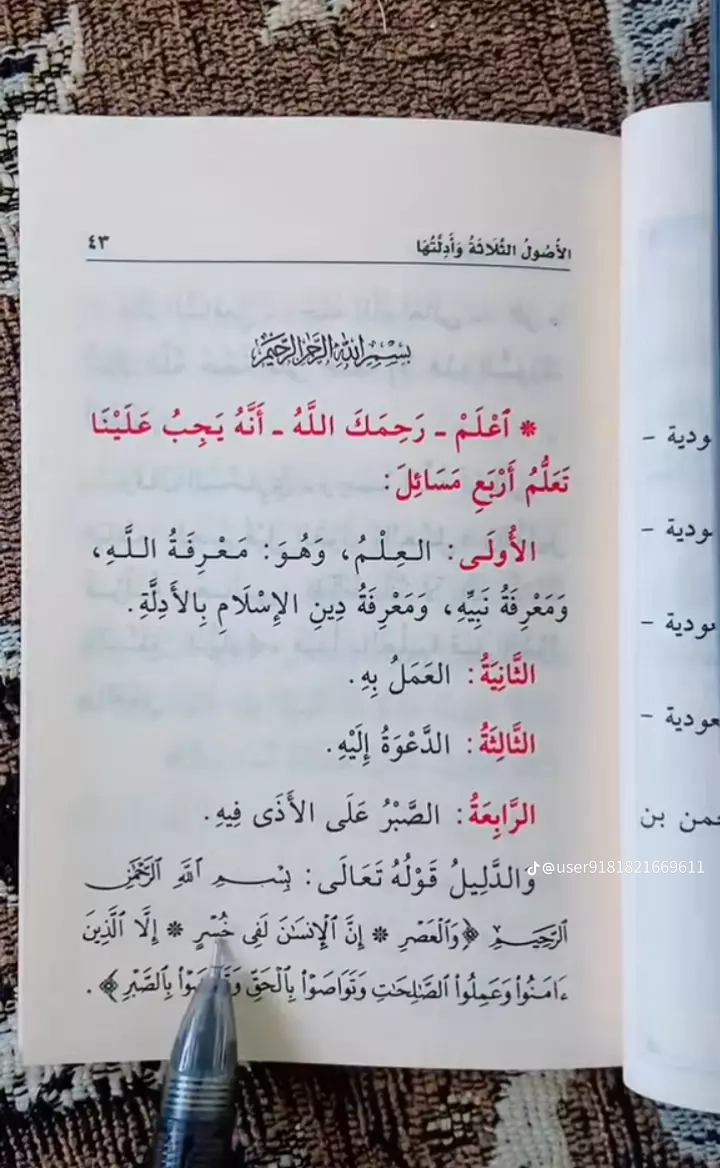 الأُصُولُ الثَّلَاثَةُ وَأَدِلَّتُهَا ٤٣
بِسْمِ اللَّهِ الرَّحْمَٰنِ الرَّحِيمِ
* ٱعْلَمْ - رَحِمَكَ اللَّهُ - أَنَّهُ يَجِبُ عَلَيْنَا
تَعَلُّمُ أَرْبَعِ مَسَائِلَ:
الأُولَى: العِلْمُ، وَهُوَ: مَعْرِفَةُ اللَّهِ،
وَمَعْرِفَةُ نَبِيِّهِ، وَمَعْرِفَةُ دِينِ الإِسْلَامِ بِالأَدِلَّةِ.
الثَّانِيَةُ: العَمَلُ بِهِ.
الثَّالِثَةُ: الدَّعْوَةُ إِلَيْهِ.
الرَّابِعَةُ: الصَّبْرُ عَلَى الأَذَى فِيهِ.
وَالدَّلِيلُ قَوْلُهُ تَعَالَى: بِسْمِ ٱللَّهِ ٱلرَّحْمَٰنِ
ٱلرَّحِيمِ ﴿وَٱلْعَصْرِ * إِنَّ ٱلْإِنسَٰنَ لَفِى خُسْرٍ * إِلَّا ٱلَّذِينَ
ءَامَنُوا۟ وَعَمِلُوا۟ ٱلصَّٰلِحَٰتِ وَتَوَاصَوْا۟ بِٱلْحَقِّ وَتَوَاصَوْا۟ بِٱلصَّبْرِ﴾.
@user9181821669611